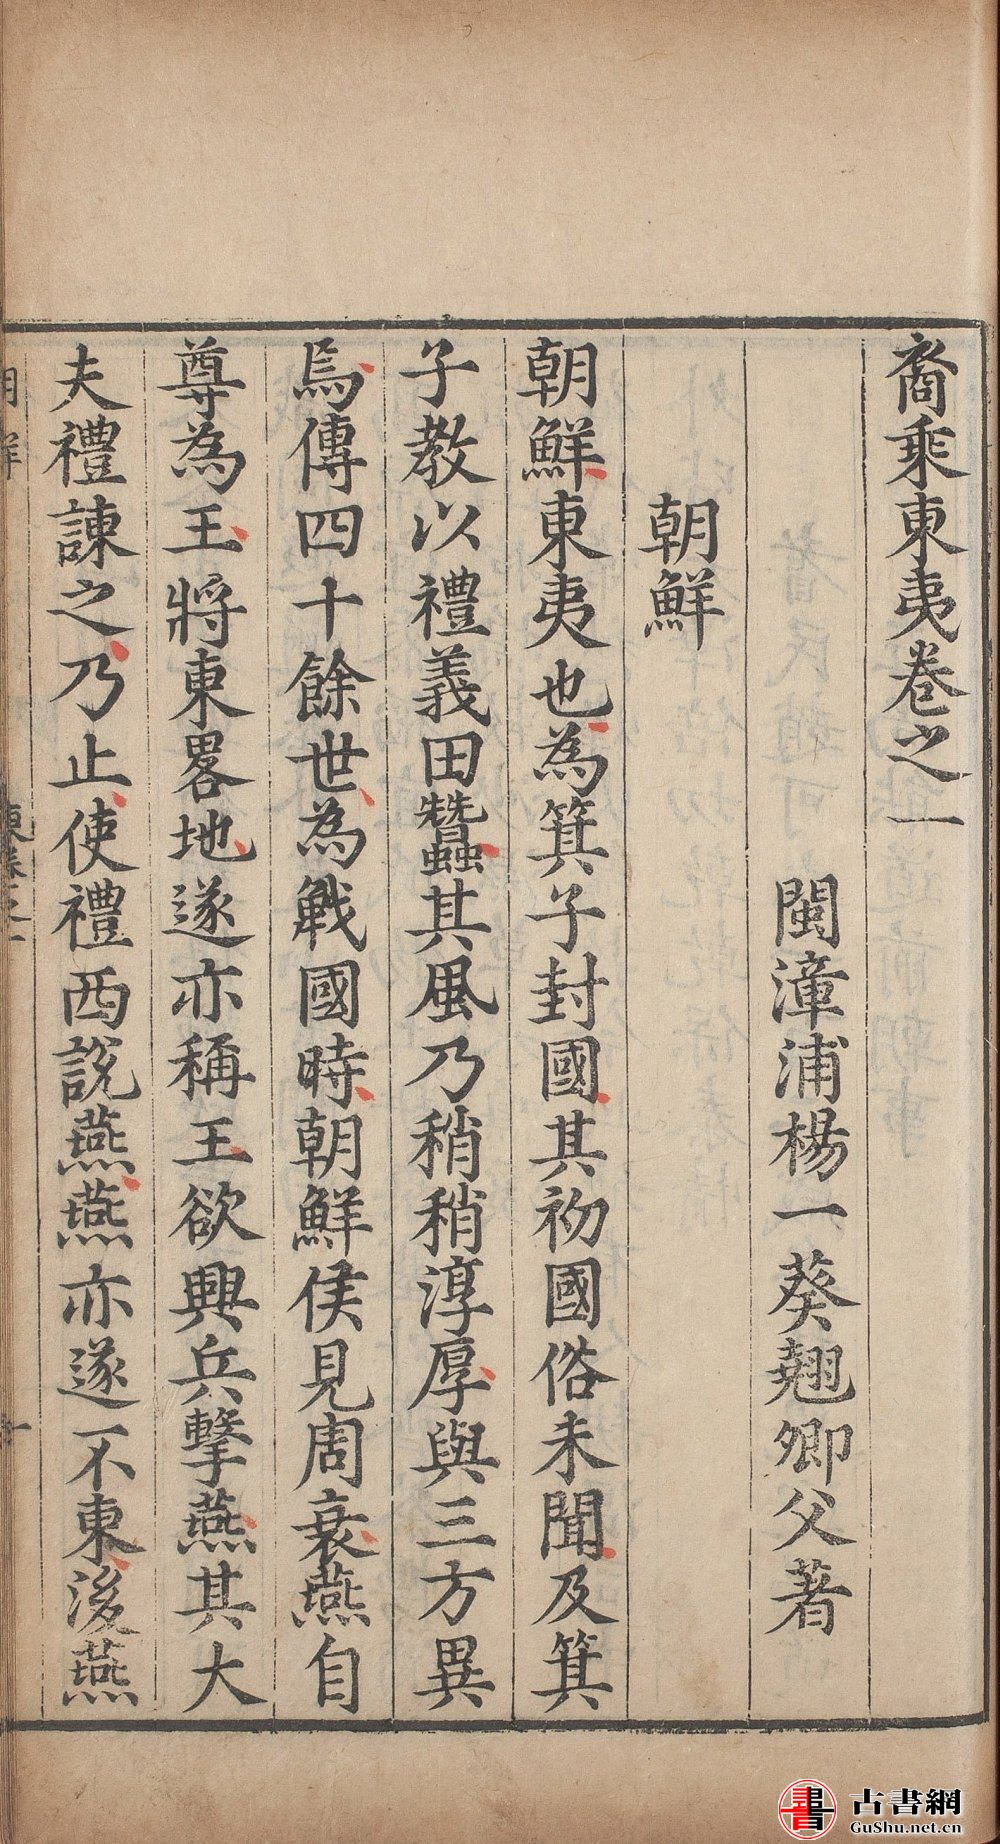 裔乘東夷卷之一
閩漳浦楊一葵翹卿父著
朝鮮
朝鮮東夷也為箕子封國其初國俗未聞及箕
子教以禮義田蠶其風乃稍稍淳厚與三方異
焉傳四十餘世為戰國時朝鮮侯見周衰燕自
尊為王將東畧地遂亦稱王欲興兵擊燕其大
夫禮諫之乃止使禮西說燕燕亦遂不東後燕
古書網
GuShu.net.cn